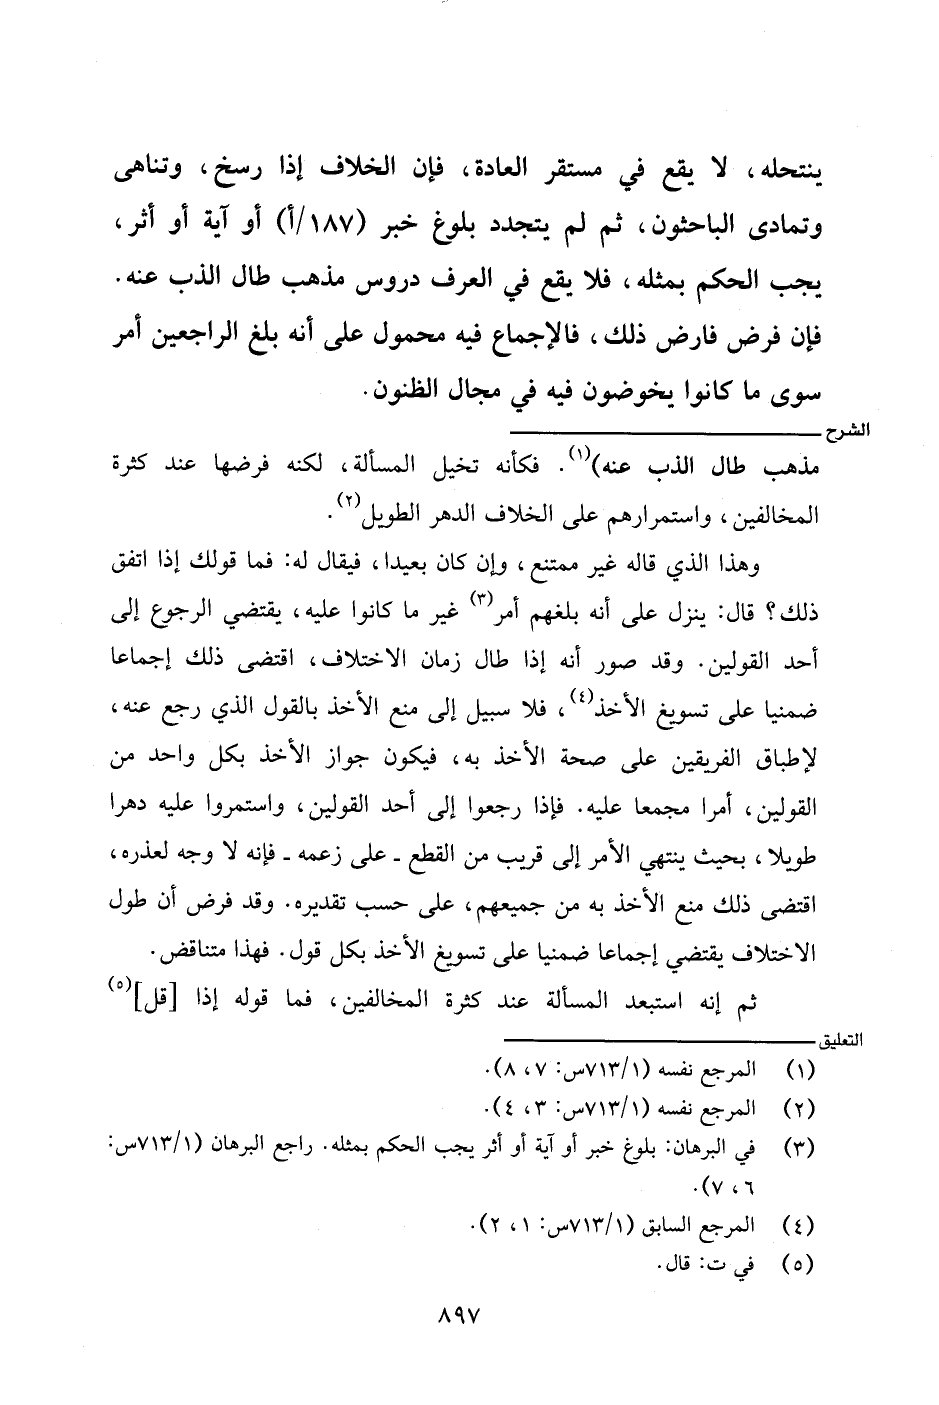 ينتحله، لا يقع في مستقر العادة، فإن الخلاف إذا رسخ، وتناهى
وتمادى الباحثون، ثم لم يتجدد بلوغ خبر (١٨٧/أ) أو آية أو أثر،
يجب الحكم بمثله، فلا يقع في العرف دروس مذهب طال الذب عنه.
فإن فرض فارض ذلك، فالإجماع فيه محمول على أنه بلغ الراجعين أمر
سوى ما كانوا يخوضون فيه في مجال الظنون.
الشرح
مذهب طال الذب عنه)(١). فكأنه تخيل المسألة، لكنه فرضها عند كثرة
المخالفين، واستمرارهم على الخلاف الدهر الطويل(٢).
وهذا الذي قاله غير ممتنع، وإن كان بعيدا، فيقال له: فما قولك إذا اتفق
ذلك؟ قال: ينزل على أنه بلغهم أمر(٣) غير ما كانوا عليه، يقتضي الرجوع إلى
أحد القولين. وقد صور أنه إذا طال زمان الاختلاف، اقتضى ذلك إجماعا
ضمنيا على تسويغ الأخذ(٤)، فلا سبيل إلى منع الأخذ بالقول الذي رجع عنه،
لإطباق الفريقين على صحة الأخذ به، فيكون جواز الأخذ بكل واحد من
القولين، أمرا مجمعا عليه. فإذا رجعوا إلى أحد القولين، واستمروا عليه دهرا
طويلا، بحيث ينتهي الأمر إلى قريب من القطع ـ على زعمه ـ فإنه لا وجه لعذره،
اقتضى ذلك منع الأخذ به من جميعهم، على حسب تقديره. وقد فرض أن طول
الاختلاف يقتضي إجماعا ضمنيا على تسويغ الأخذ بكل قول. فهذا متناقض.
ثم إنه استبعد المسألة عند كثرة المخالفين، فما قوله إذا [قل](٥)
التعليق
(١) المرجع نفسه (٧١٣/١س: ٧، ٨).
(٢) المرجع نفسه (٧١٣/١س: ٣، ٤).
(٣) في البرهان: بلوغ خبر أو آية أو أثر يجب الحكم بمثله. راجع البرهان (٧١٣/١س:
٦، ٧).
(٤) المرجع السابق (٧١٣/١س: ١، ٢).
(٥) في ت: قال.
٨٩٧